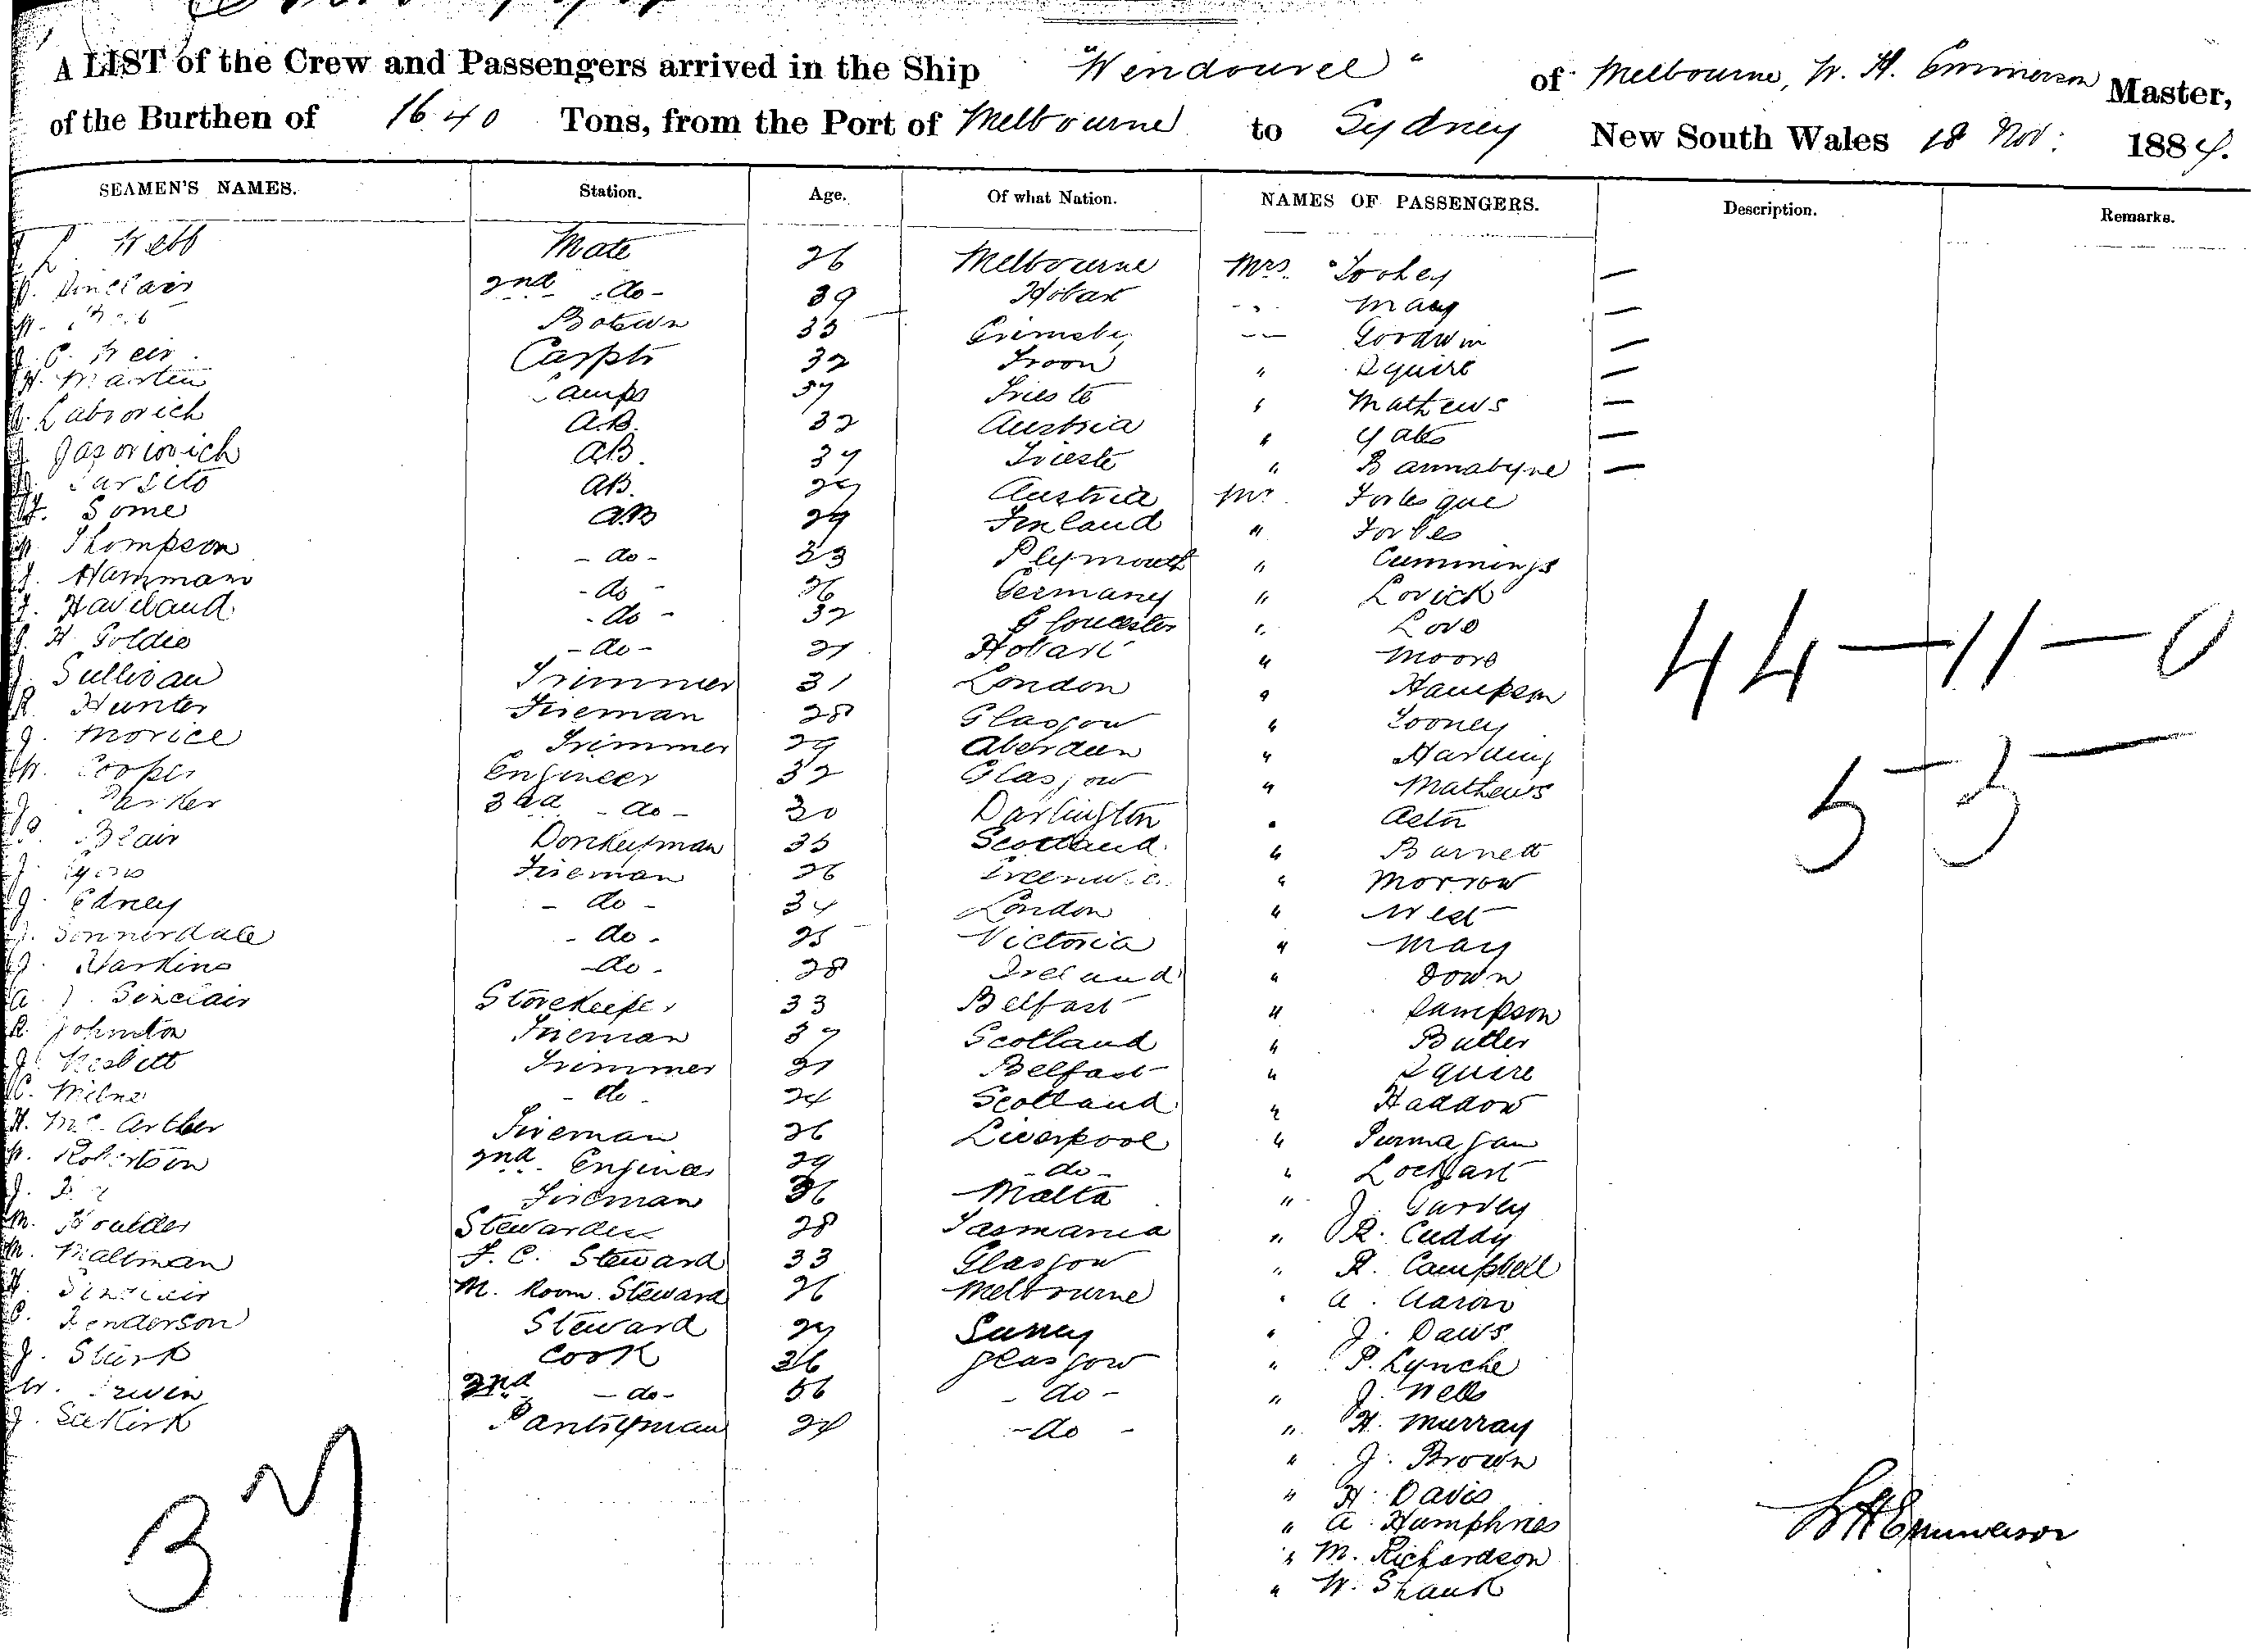 A LIST of the Crew and Passengers arrived in the Ship "Wendouree" of Melbourne, W. H. Emmerson Master,
of the Burthen of 1640 Tons, from the Port of Melbourne to Sydney New South Wales 18 Nov: 1884.
SEAMEN'S NAMES. Station. Age. Of what Nation. NAMES OF PASSENGERS. Description. Remarks.
Webb Mate 26 Melbourne Mrs. Toohey —
Sinclair 2nd - do - 39 Hobart " May —
Botswn 33 Grimsby " Goodwin —
Weir Carptr 32 Troon " Squire —
H. Martin Lamps 37 Trieste " Mathews —
Labrovich A.B. 32 Austria " Yates —
A.B. 34 Trieste " —
A.B. Austria Mr.
Some A.B 29 Finland " Forbes
Thompson - do - 33 Plymouth " Cummings
J. Hammam - do - 26 Germany " Lovick
Haviland - do - 32 Gloucester " Love
H Goldie - do - 21 Hobart " Moore
J. Sullivan Trimmer 31 London " Hampson
R. Hunter Fireman 28 Glasgow " Looney
J. Morice Trimmer 29 Aberdeen " Harding
W. Cooper Engineer 32 Glasgow " Mathews
J. Parker 3rd - do - 30 Darlington "
Blair Donkeyman 35 Scotland " Barnett
J. Fireman 26 " Morrow
J. Edney - do - 34 London " West
J. Sonnerdale - do - 25 Victoria " May
J. Harkins - do - 28 Ireland " Down
A. J. Sinclair Storekeeper 33 Belfast " Sampson
R. Johnston Fireman 37 Scotland " Butler
J. Nesbitt Trimmer 21 Belfast " Squire
C. Milne - do - 24 Scotland " Haddow
H. Mc. Arther Fireman 26 Liverpool "
W. Robertson 2nd Engineer 29 - do - " Lockhart
J. Fireman 36 Malta " J. Garvey
M. Stewardess 28 Tasmania " R. Cuddy
M. Maltman F. C. Steward 33 Glasgow " R. Campbell
H. Sinclair M. Room Steward 26 Melbourne " A. Aaron
C. Henderson Steward 27 Surrey " J. Daws
J. Cook 36 Glasgow " P. Lynche
W. Irwin 2nd - do - 56 - do - " J. Wells
J. Selkirk Pantryman 24 - do - " H. Murray
" J. Brown
" H. Davis
" A. Humphries
" M. Richardson
" W. Shank
44 — 11 — 0
55
37
W H Emmerson